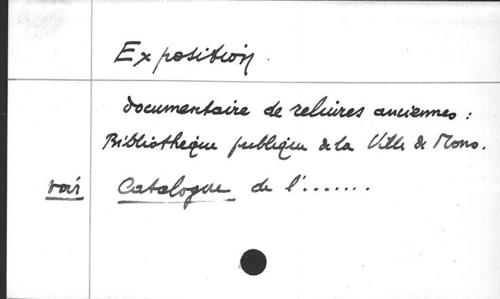 Exposition.
documentaire de reliures anciennes :
Bibliothèque publique de la Ville de Mons.
voir Catalogue de l'.......